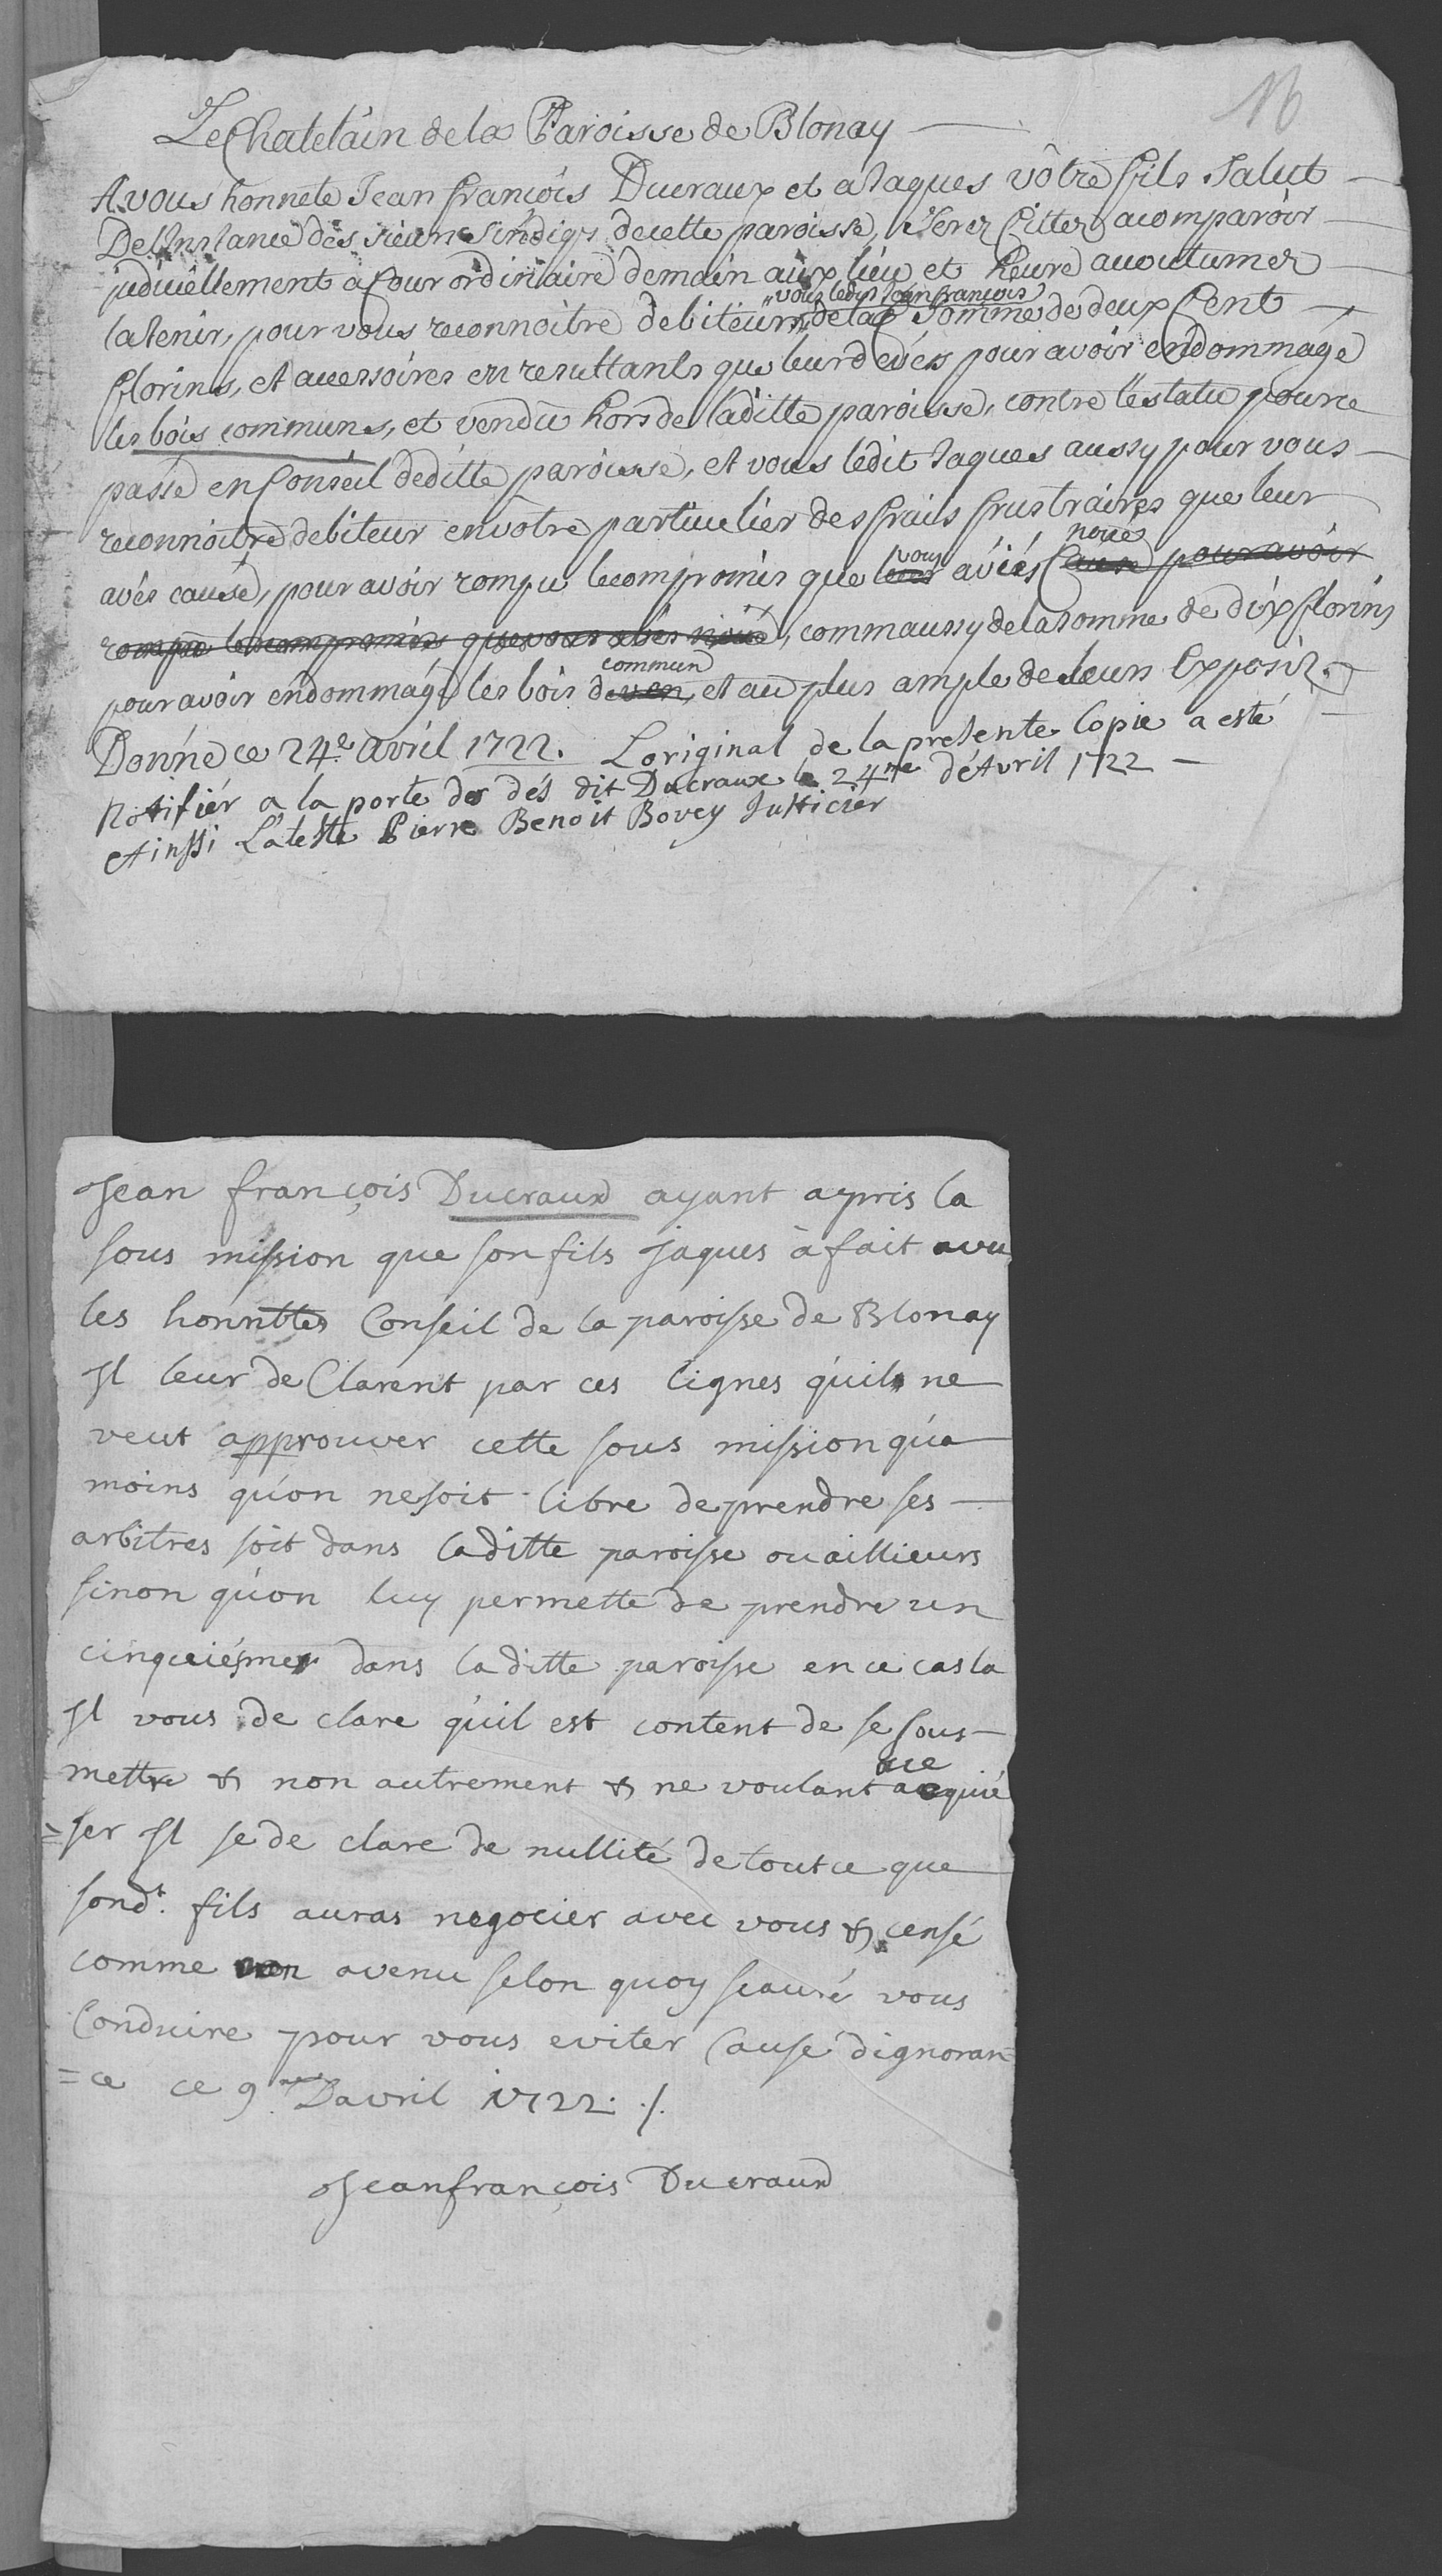 16
Le Chatelain de la Paroisse de Blonay
A vous honnete Jean François Ducraux et a Jaques vôtre fils Salut
De L'instance des sieurs Sindiqs de cette paroisse, Serez Cittez a comparoir
judiciellement a Cour ordinaire demain aux lieu et heure accoutumez
vous ledit Jean françois
la tenir, pour vous reconnoitre debiteurs, de la Somme de deux Cent
florins, et accessoires en resultants que leur devés pour avoir endommagé
les bois communs, et vendu hors de laditte paroisse, contre l'estatu pour ce
passé en Conseil de ditte paroisse, et vous ledit Jaques aussy pour vous
reconnoitre debiteur en votre particulier des frais frustraires que leur
vous noué
avés causé, pour avoir rompu le compromis que leur aviés Causé pour avoir
rompu le compromis que vous aviés noüé, comm aussy de la somme de dix florins
commun
pour avoir endommagé les bois de ven, et au plus ample de leurs Exposiz.
Donné ce 24e. avril 1722. L original de la presente Copie a esté
Notifiér a la porte des dés dit Ducraux le 24me d'Avril 1722
Ainssi L'ateste Pierre Benoit Bovey Justicier
Jean françois Ducraux ayant apris la
sous mission que son fils Jaques à fait avec
les honnettes Conseil de la paroisse de Blonay
Il leur de Clarent par ces lignes qu'il ne
veut approuver cette sous mission qu'a
moins qu'on ne soit libre de prendre ses
arbitres soit dans laditte paroisse ou aillieurs
sinon qu'on luy permette de prendre un
cinquiésme dans laditte paroisse en ce cas la
Il vous de clare qu'il est content de se sous
ace
mettre & non autrement & ne voulant acquié
= ser Il se de clare de nullité de tout ce que
sondt. fils auras negocier avec vous & censé
comme non avenu selon quoy scauré vous
Conduire pour vous eviter Cause d'ignoran
= ce ce 9me D'avril 1722 ./.
Jeanfrançois Ducraux